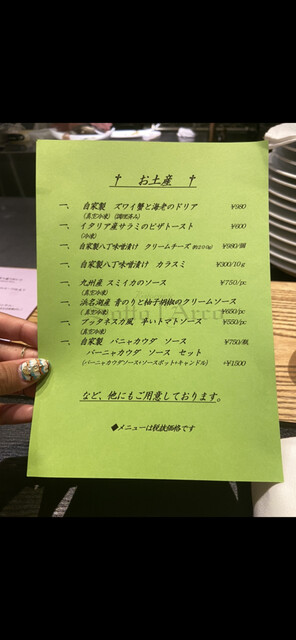 † お土産 †
一、 自家製 ズワイ蟹と海老のドリア ¥980
(真空冷凍) (調理済み)
一、 イタリア産サラミのピザトースト ¥600
(冷凍)
一、 自家製八丁味噌漬け クリームチーズ ¥980/個
一、 自家製八丁味噌漬け カラスミ ¥300/10g
一、 九州産 スミイカのソース ¥750/pc
(真空冷凍)
一、 浜名湖産 青のりと柚子胡椒のクリームソース
(真空冷凍) ¥650/pc
一、 プッタネスカ風 辛いトマトソース ¥550/pc
(真空冷凍)
一、 自家製 バニャカウダ ソース ¥750/瓶
バーニャカウダ ソース セット
(バーニャカウダソース・ソースポット・キャンドル) ¥1500
など、他にもご用意しております。
◆メニューは税抜価格です